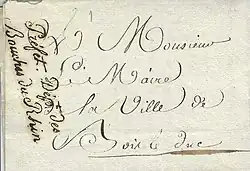 Préfet. Dépt. des
Bouches du Rhin
A Monsieur
Le Maire
de la Ville de
Bois le duc